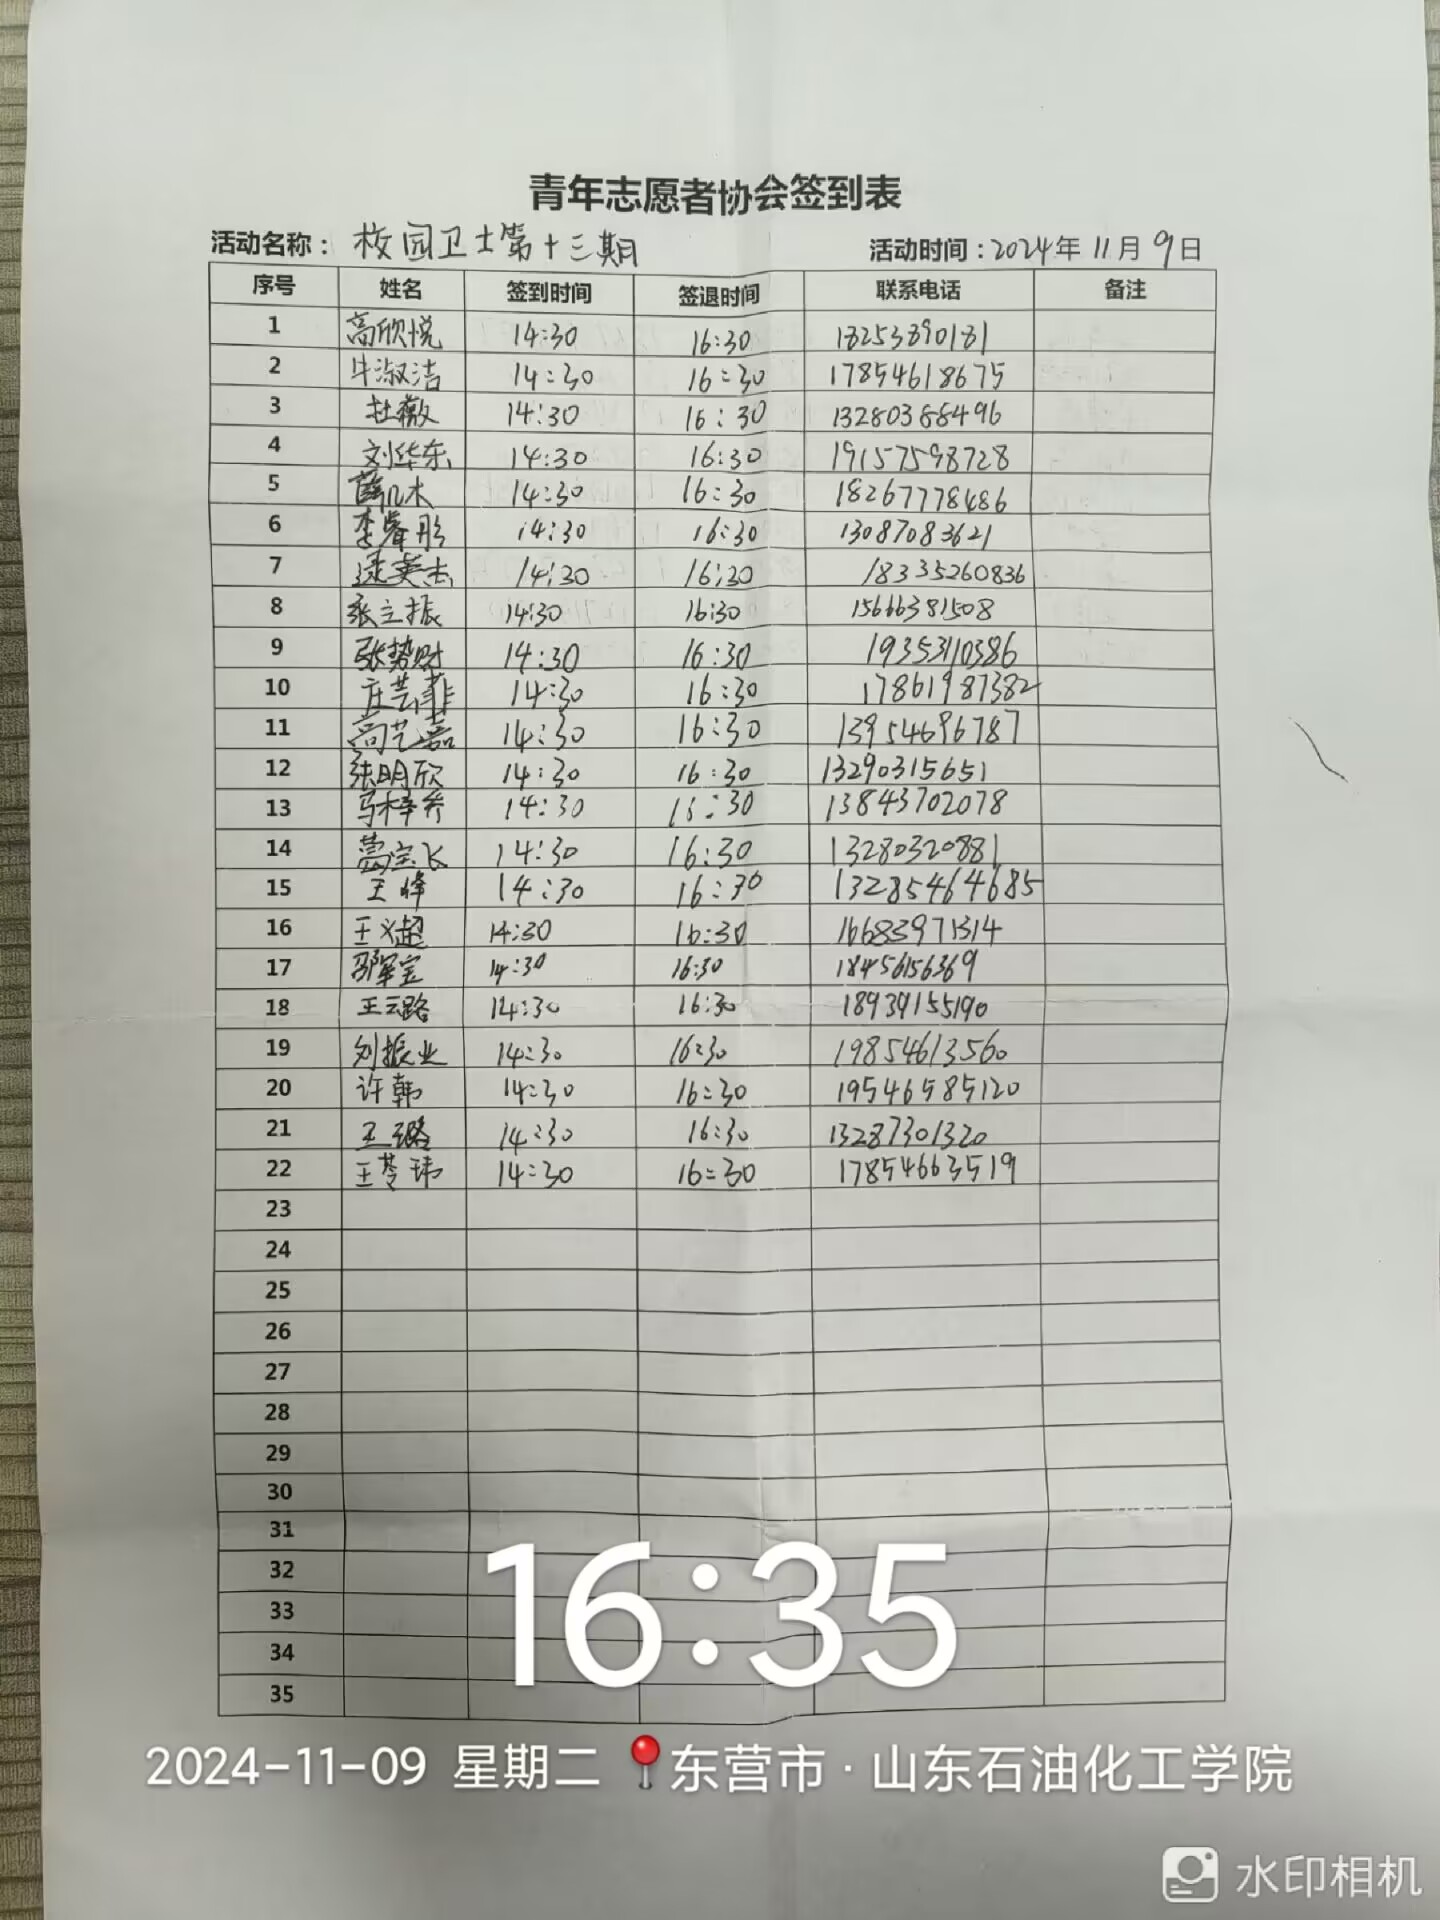 青年志愿者协会签到表
活动名称： 校园卫士第十三期 活动时间：2024年11月9日
序号 姓名 签到时间 签退时间 联系电话 备注
1 高欣悦 14:30 16:30 18253890181
2 牛淑洁 14:30 16:30 17854618675
3 杜薇 14:30 16:30 13280388496
4 刘华东 14:30 16:30 19157598728
5 薛几木 14:30 16:30 18267778486
6 李睿彤 14:30 16:30 13087083621
7 逯英杰 14:30 16:30 18335260836
8 张立振 14:30 16:30 15666381508
9 张势财 14:30 16:30 19353110386
10 庄芸菲 14:30 16:30 17861987382
11 尚艺嘉 14:30 16:30 13954696787
12 张明欣 14:30 16:30 13290315651
13 马梓乔 14:30 16:30 13843702078
14 葛宝飞 14:30 16:30 13280320881
15 王烽 14:30 16:30 13285464685
16 王义超 14:30 16:30 16683971314
17 宝 14:30 16:30 18456156369
18 王云路 14:30 16:30 18939155190
19 刘振业 14:30 16:30 19854613560
20 许韩 14:30 16:30 19546585120
21 王璐 14:30 16:30 13287301320
22 王苓玮 14:30 16:30 17854663519
23
24
25
26
27
28
29
30
31
32
33
34
35
16:35
2024-11-09 星期二 东营市·山东石油化工学院
水印相机